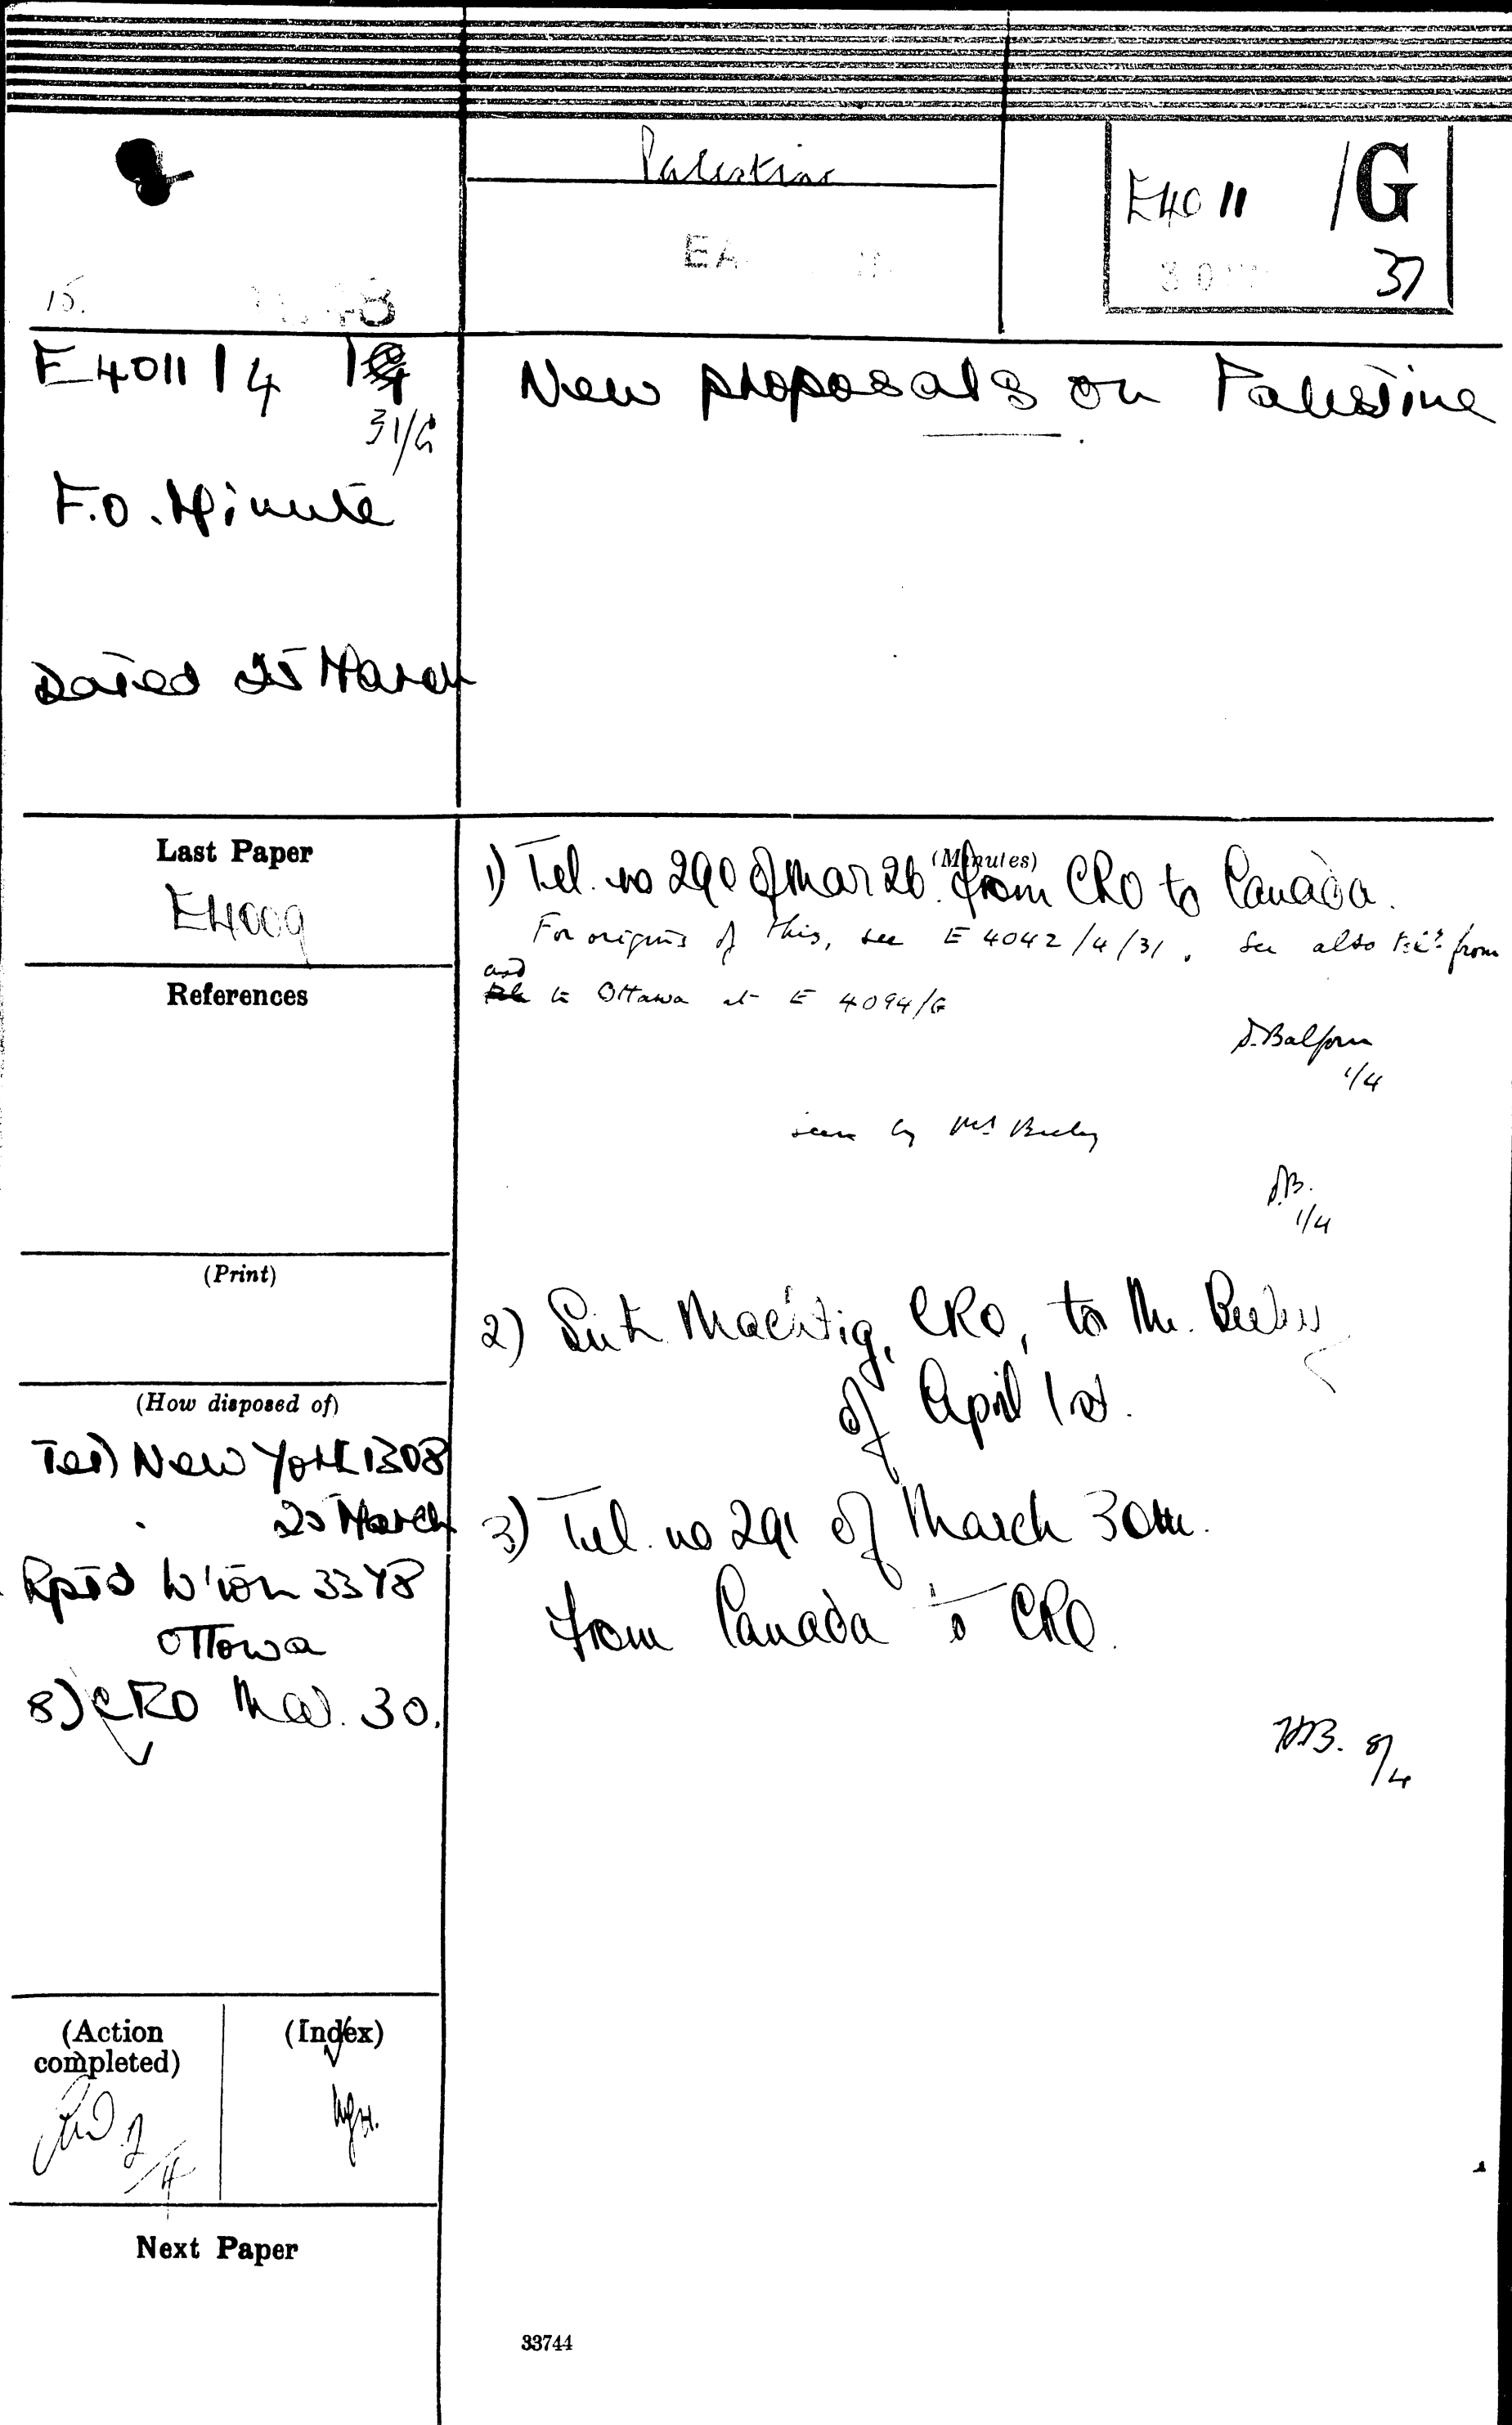 Palestine
E4011 /G
EA
30
31
15.
48
E4011 / 4
31/G
New proposals on Palestine
F.O. Minute
Dated 25 March
Last Paper
E4009
References
(Print)
(How disposed of)
Tel) New York 1308
25 March
Rptd W'ton 3378
Ottowa
8) CRO Mar. 30.
(Action
completed)
(Index)
Next Paper
(Minutes)
1) Tel. no 290 of Mar 26. from CRO to Canada.
For origins of this, see E 4042/4/31. See also tels from
and
to Ottawa at E 4094/G
J. Balfour
1/4
seen by Mr Beeley
J.B.
1/4
2) Sir E. Machtig, CRO, to Mr. Beeley
of April 1st.
3) Tel. no 291 of March 30th.
from Canada to CRO.
H.B. 8/4
33744